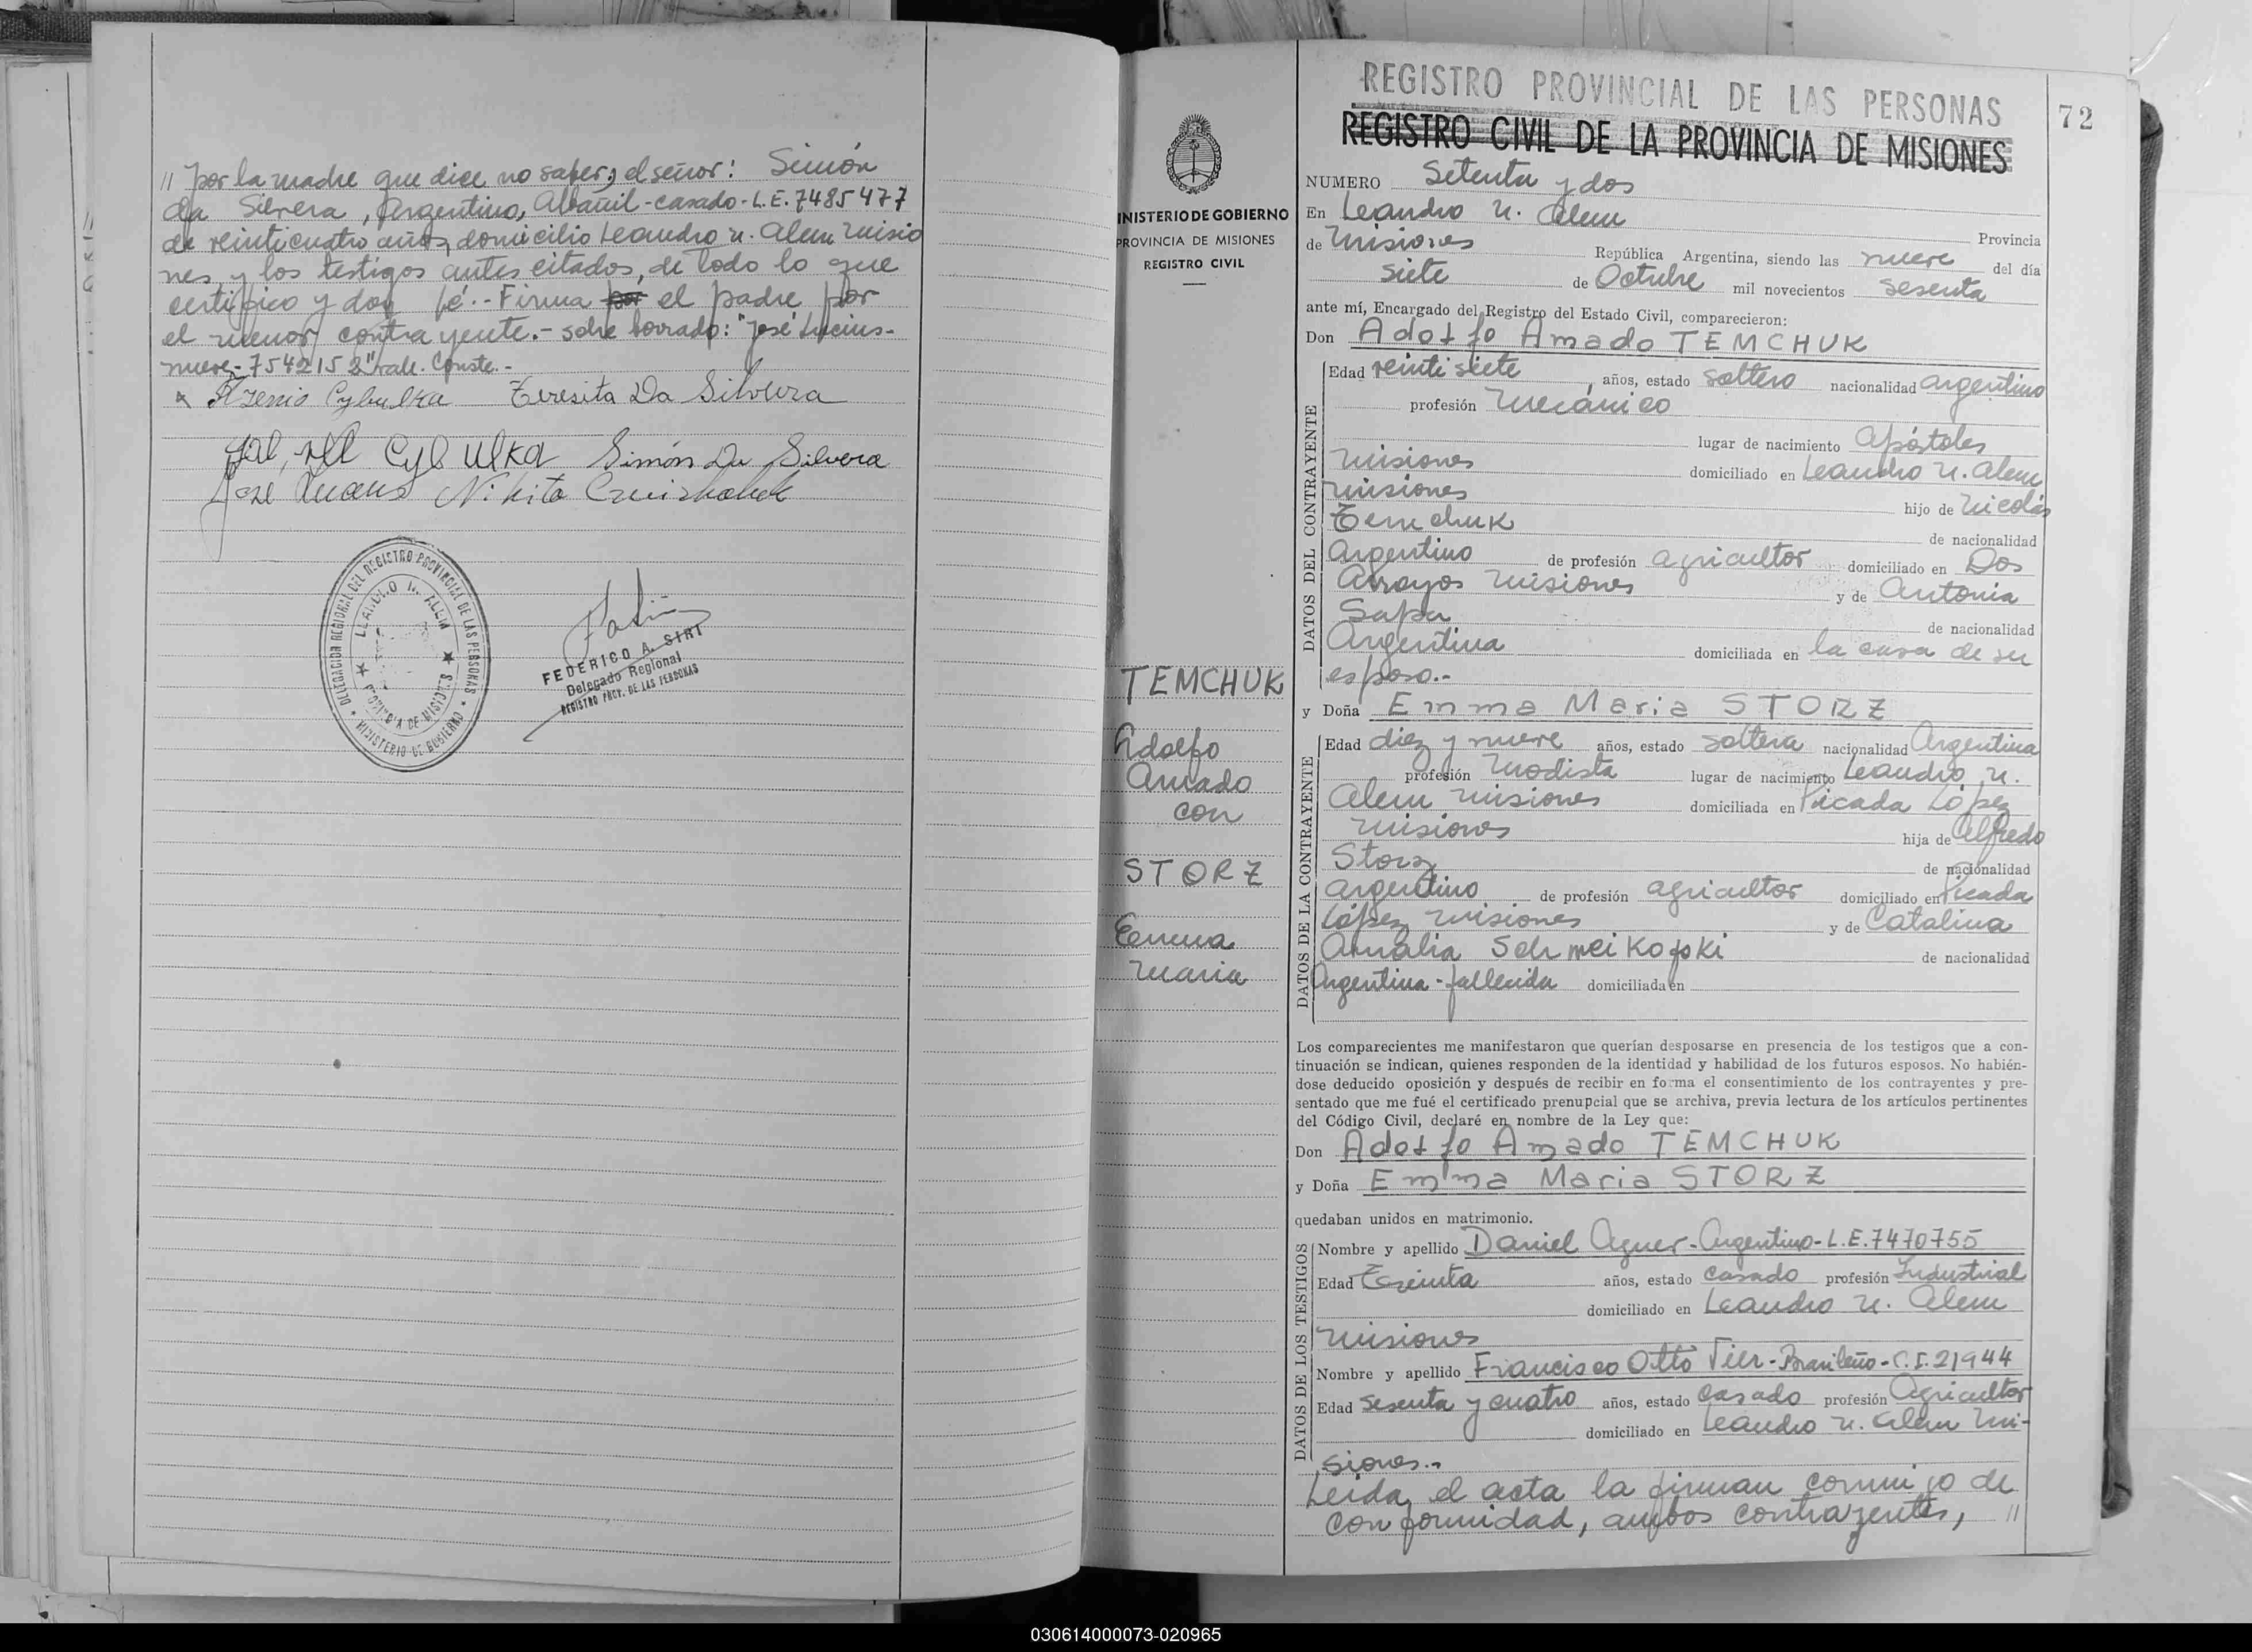 // por la madre que dice no saber, el señor: Simón
da Silvera, Argentino, Albañil-casado-L.E. 7485477
de veinticuatro años, domicilio Leandro N. Alem Misio
nes, y los testigos antes citados, de todo lo que
certifico y doy fé.- Firma por el padre por
el menor contrayente.- sobre borrado: "José Lucius-
nueve-7542152" vale. Conste.-
Cybulka Teresita Da Silvera
Cybulka Simón Da Silvera
José Nikita
DELEGACION REGIONAL DEL REGISTRO PROVINCIAL DE LAS PERSONAS
LEANDRO N. ALEM
PROVINCIA DE MISIONES
MINISTERIO DE GOBIERNO
FEDERICO A. SIRI
Delegado Regional
REGISTRO PROV. DE LAS PERSONAS
INISTERIO DE GOBIERNO
PROVINCIA DE MISIONES
REGISTRO CIVIL
TEMCHUK
Adolfo
Amado
con
STORZ
Emma
Maria
REGISTRO PROVINCIAL DE LAS PERSONAS
72
REGISTRO CIVIL DE LA PROVINCIA DE MISIONES
NUMERO Setenta y dos
En Leandro N. Alem
Provincia
de Misiones República Argentina, siendo las nueve del día
siete de Octubre mil novecientos sesenta
ante mí, Encargado del Registro del Estado Civil, comparecieron:
Don Adolfo Amado TEMCHUK
DATOS DEL CONTRAYENTE
Edad veintisiete, años, estado soltero nacionalidad argentino
profesión Mecánico
lugar de nacimiento Apóstoles
Misiones domiciliado en Leandro N. Alem
Misiones hijo de Nicolás
Temchuk de nacionalidad
Argentino de profesión agricultor domiciliado en Dos
Arroyos Misiones y de Antonia
Sapa de nacionalidad
Argentina domiciliada en la casa de su
esposo.-
y Doña Emma Maria STORZ
DATOS DE LA CONTRAYENTE
Edad diez y nueve años, estado soltera nacionalidad Argentina
profesión Modista lugar de nacimiento Leandro N.
Alem Misiones domiciliada en Picada López
Misiones hija de Alfredo
Storz de nacionalidad
argentino de profesión agricultor domiciliado en Picada
López Misiones y de Catalina
Amalia Schmeikofski de nacionalidad
Argentina-fallecida domiciliada en
Los comparecientes me manifestaron que querían desposarse en presencia de los testigos que a con-
tinuación se indican, quienes responden de la identidad y habilidad de los futuros esposos. No habién-
dose deducido oposición y después de recibir en forma el consentimiento de los contrayentes y pre-
sentado que me fué el certificado prenupcial que se archiva, previa lectura de los artículos pertinentes
del Código Civil, declaré en nombre de la Ley que:
Don Adolfo Amado TEMCHUK
y Doña Emma Maria STORZ
quedaban unidos en matrimonio.
DATOS DE LOS TESTIGOS
Nombre y apellido Daniel Aguer-Argentino-L.E. 7470755
Edad Treinta años, estado casado profesión Industrial
domiciliado en Leandro N. Alem
Misiones
Nombre y apellido Francisco Otto Vier-Brasileño-C.I. 21944
Edad sesenta y cuatro años, estado casado profesión Agricultor
domiciliado en Leandro N. Alem Mi-
siones.-
Leida, el acta la firman conmigo de
conformidad, ambos contrayentes, //
030614000073-020965